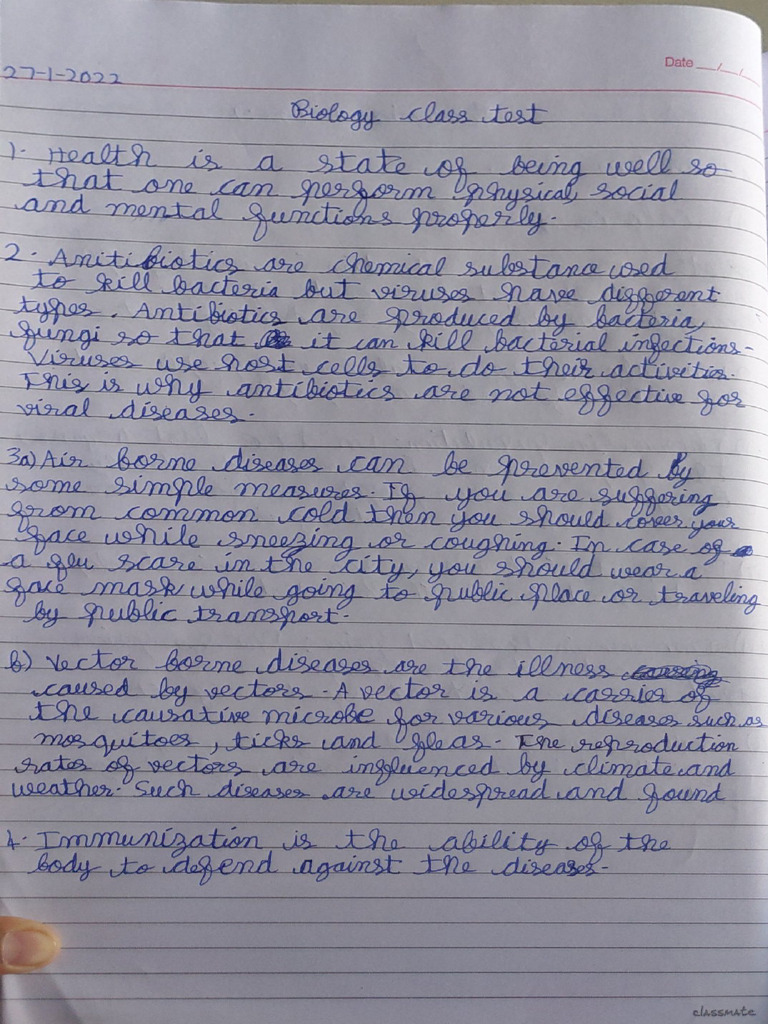 Date __/__/__
27-1-2022
Biology class test
1. Health is a state of being well so
that one can perform physical, social
and mental functions properly.
2. Anitibiotics are chemical substance used
to kill bacteria but viruses have different
types. Antibiotics are produced by bacteria,
fungi so that it can kill bacterial infections.
Viruses use host cells to do their activities.
This is why antibiotics are not effective for
viral diseases.
3a) Air borne diseases can be prevented by
some simple measures. If you are suffering
from common cold then you should cover your
face while sneezing or coughing. In case of
a flu scare in the city, you should wear a
face mask while going to public place or traveling
by public transport.
b) Vector borne diseases are the illness causing
caused by vectors. A vector is a carrier of
the causative microbe for various diseases such as
mosquitoes, ticks and fleas. The reproduction
rates of vectors are influenced by climate and
weather. Such diseases are widespread and found
4. Immunization is the ability of the
body to defend against the diseases.
classmate